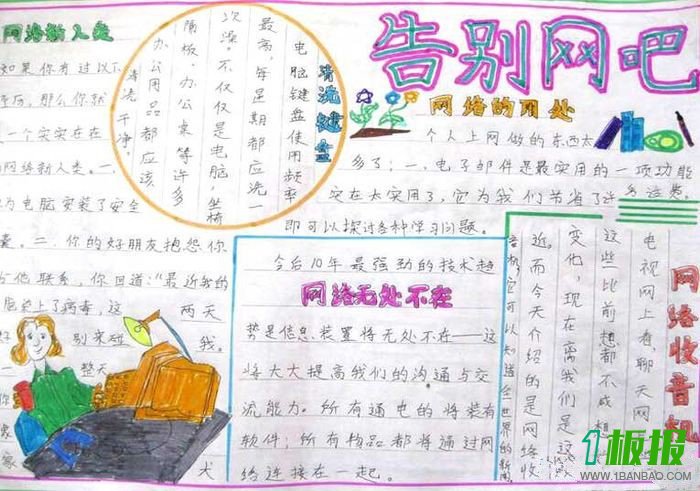 告别网吧
网络新人类
如果你有过以下
历，那么你就
一个实实在在
网络新人类。一、
为电脑安装了安全
。二、你的好朋友抱怨你
他联系，你回道："最近我的
脑染上了病毒，这 两天
好 别来碰 我。
一 整天
你
家
家 犬
清洗键盘
电脑键盘使用频率
最高，每星期都应洗一
次澡。不仅仅是电脑，坐椅
隔板、办公桌等许多
办公用品都应该
清洗干净。
网络的用处
个人上网做的东西太
多了：一、电子邮件是最实用的一项功能
实在太实用了，它为我们节省了许多话费。
即可以探讨各种学习问题。
网络无处不在
今后10年最强劲的技术趋
势是信息装置将无处不在——这
将大大提高我们的沟通与交
流能力。所有通电的将装有
软件；所有物品都将通过网
络连接在一起。
网络收音机
电视网上看，聊天网
这些比前想都不敢想
变化，现在离我们是这
近。而今天介绍的是网络收
音机，它可以知道全世界的新闻
1板报
WWW.1BANBAO.COM